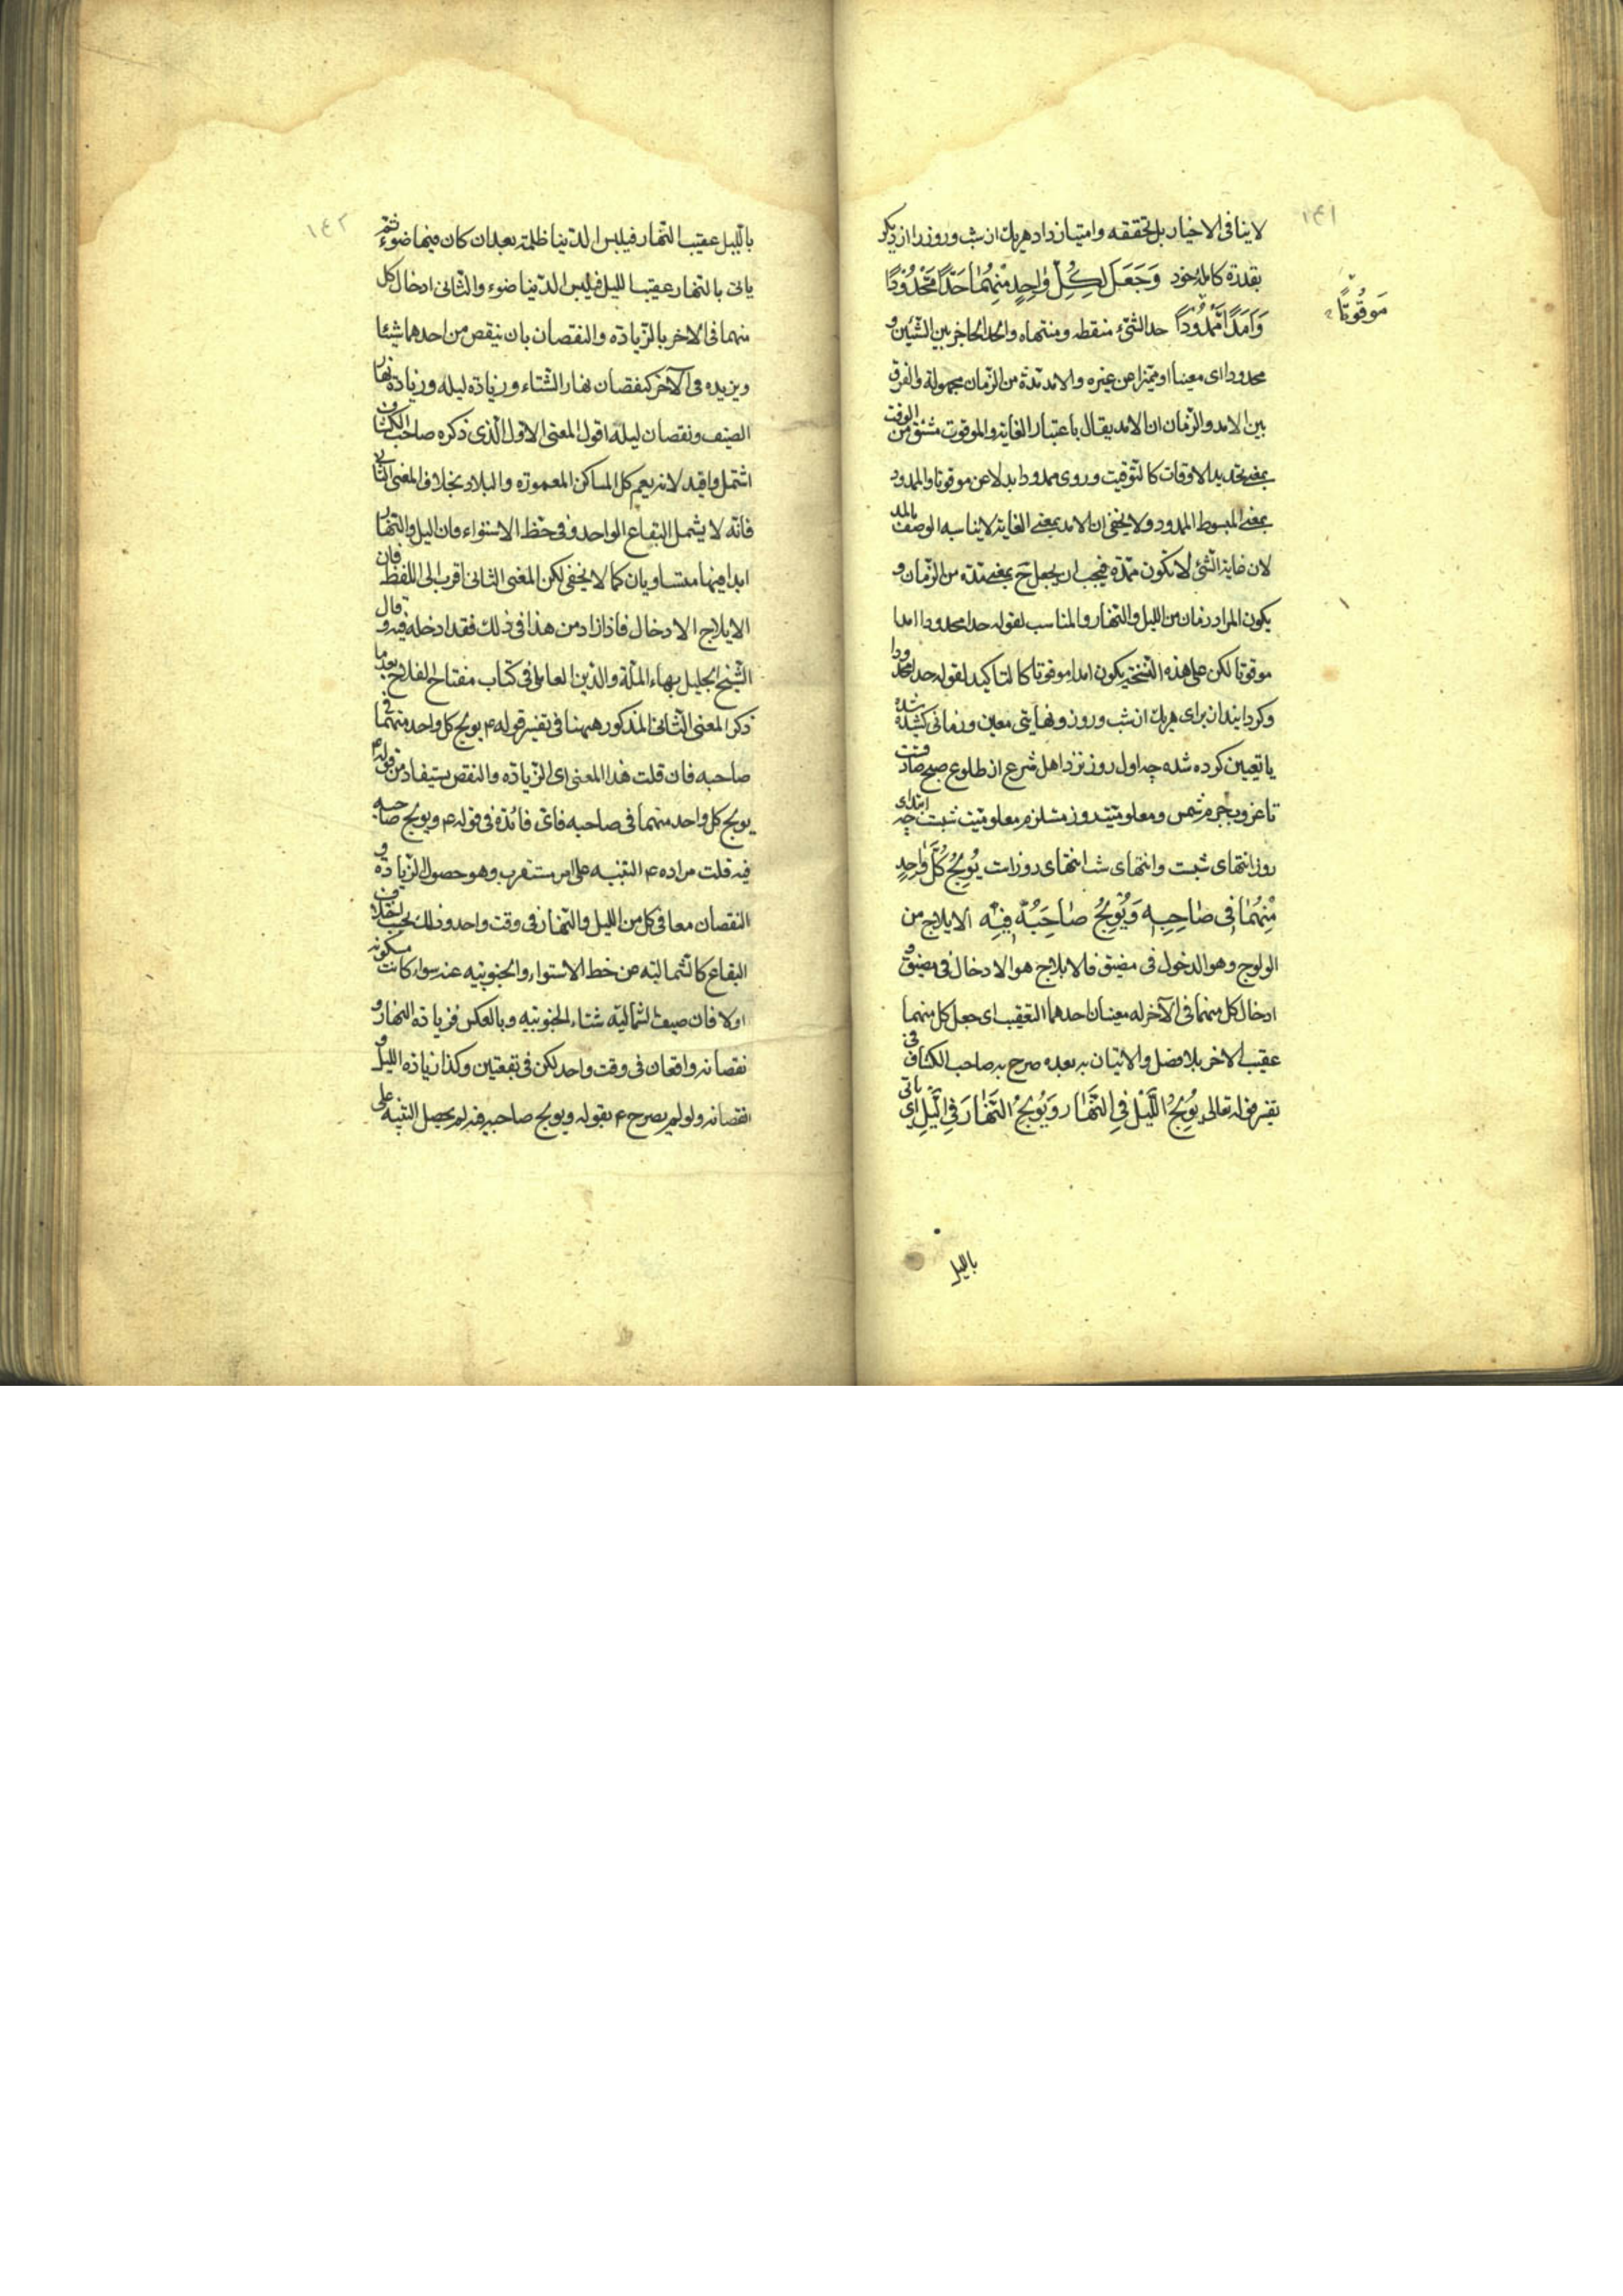 ١٤١
لاينافى الاختيار بل تحققه وامتياز داد هريك از شب وروز را از ديكر
بقدرة كامله خود وَجَعَلَ لِكُلِّ وٰاحِدٍ مِنْهُمٰا حَدًّا مَحْدُودًا
مَوقُوتًا
وَاَمَدًا مَمْدُودًا حد الشئ منقطعه ومنتهاه والحد الحاجز بين الشيئين و
محدودا اى معينا او متميزا عن غيره والامد مدة من الزمان مجهولة والفرق
بين الامد والزمان ان الامد يقال باعتبار الغاية والموقوت مشتق من الوقت
بمعنى تحديد الاوقات كالتوقيت وروى ممدودا بدلا عن موقوتا والممدود
بمعنى المبسوط الممدود ولا يخفى ان الامد بمعنى الغاية لايناسبه الوصف بالمد
لان غاية الشئ لا تكون ممتدة فيجب ان يجعل ح بمعنى مدة من الزمان و
يكون المراد زمان من الليل والنهار والمناسب لقوله حدا محدودا امدا
موقوتا لكن على هذه النسخة يكون امدا موقوتا كالتاكيد لقوله حدا محدودا
وكردانيد از براى هريك از شب وروز ونهايتى معين وزمانى كشيده شده
يا تعيين كرده شده چه اول روز نزد اهل شرع از طلوع صبح صادقست
تا غروب جرم شمس ومعلوميت روز مستلزم معلوميت شبست چه ابتداى
روز انتهاى شبست وانتهاى شب انتهاى روزات يُولِجُ كُلَّ وٰاحِدٍ
مِنْهُمٰا فِى صٰاحِبِهِ وَيُولِجُ صٰاحِبَهُ فِيهِ الايلاج من
الولوج وهو الدخول فى مضيق فالايلاج هو الادخال فى مضيق و
ادخال كل منهما فى الآخر له معنيان احدهما التعقيب اى جعل كل منهما
عقيب الاخر بلا فصل والاتيان به بعده صرح به صاحب الكشاف فى
تفسير قوله تعالى يُولِجُ اللَّيْلَ فِى النَّهٰارِ وَيُولِجُ النَّهٰارَ فِى اللَّيْلِ اى ياتى
بالليل
١٤٢
بالليل عقيب النهار فيلبس الدنيا ظلمة بعد ان كان فيها ضوء ثم
ياتى بالنهار عقيب الليل فيلبس الدنيا ضوء والثانى ادخال كل
منهما فى الاخر بالزيادة والنقصان بان ينقص من احدهما شيئا
ويزيده فى الآخر كنقصان نهار الشتاء وزيادة ليله وزيادة نهار
الصيف ونقصان ليله اقول المعنى الاول الذى ذكره صاحب الكشاف
اشمل وافيد لانه يعم كل المساكن المعمورة والبلاد بخلاف المعنى الثانى
فانه لا يشمل البقاع الواحد وفى خط الاستواء فان الليل والنهار
ابدا فيها متساويان كما لا يخفى لكن المعنى الثانى اقرب الى اللفظ فان
الايلاج الادخال فاذا زاد من هذا فى ذلك فقد ادخله فيه وقال
الشيخ الجليل بهاء الملة والدين العاملى فى كتاب مفتاح الفلاح بعد ما
ذكر المعنى الثانى المذكور ههنا فى تفسير قوله ع يولج كل واحد منهما فى
صاحبه فان قلت هذا المعنى اى الزيادة والنقص يستفاد من قوله ع
يولج كل واحد منهما فى صاحبه فاى فائدة فى قوله ع ويولج صاحبه
فيه قلت مراده ع التنبيه على امر مستغرب وهو حصول الزيادة و
النقصان معا فى كل من الليل والنهار فى وقت واحد وذلك بحسب اختلاف
البقاع كالشمالية عن خط الاستواء والجنوبية عنه سواء كانت مسكونة
اولا فان صيف الشمالية شتاء الجنوبية وبالعكس فزيادة النهار و
نقصانه واقعان فى وقت واحد لكن فى بقعتين وكذا زيادة الليل و
نقصانه ولو لم يصرح ع بقوله ويولج صاحبه فيه لم يحصل التنبيه على